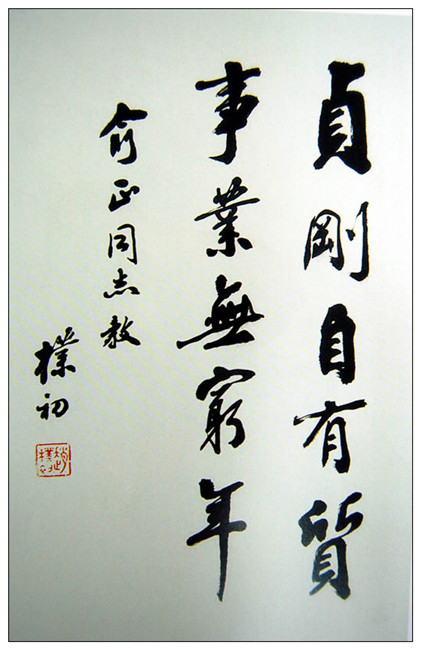 貞剛自有質
事業無窮年
俞正同志教
樸初
趙樸初